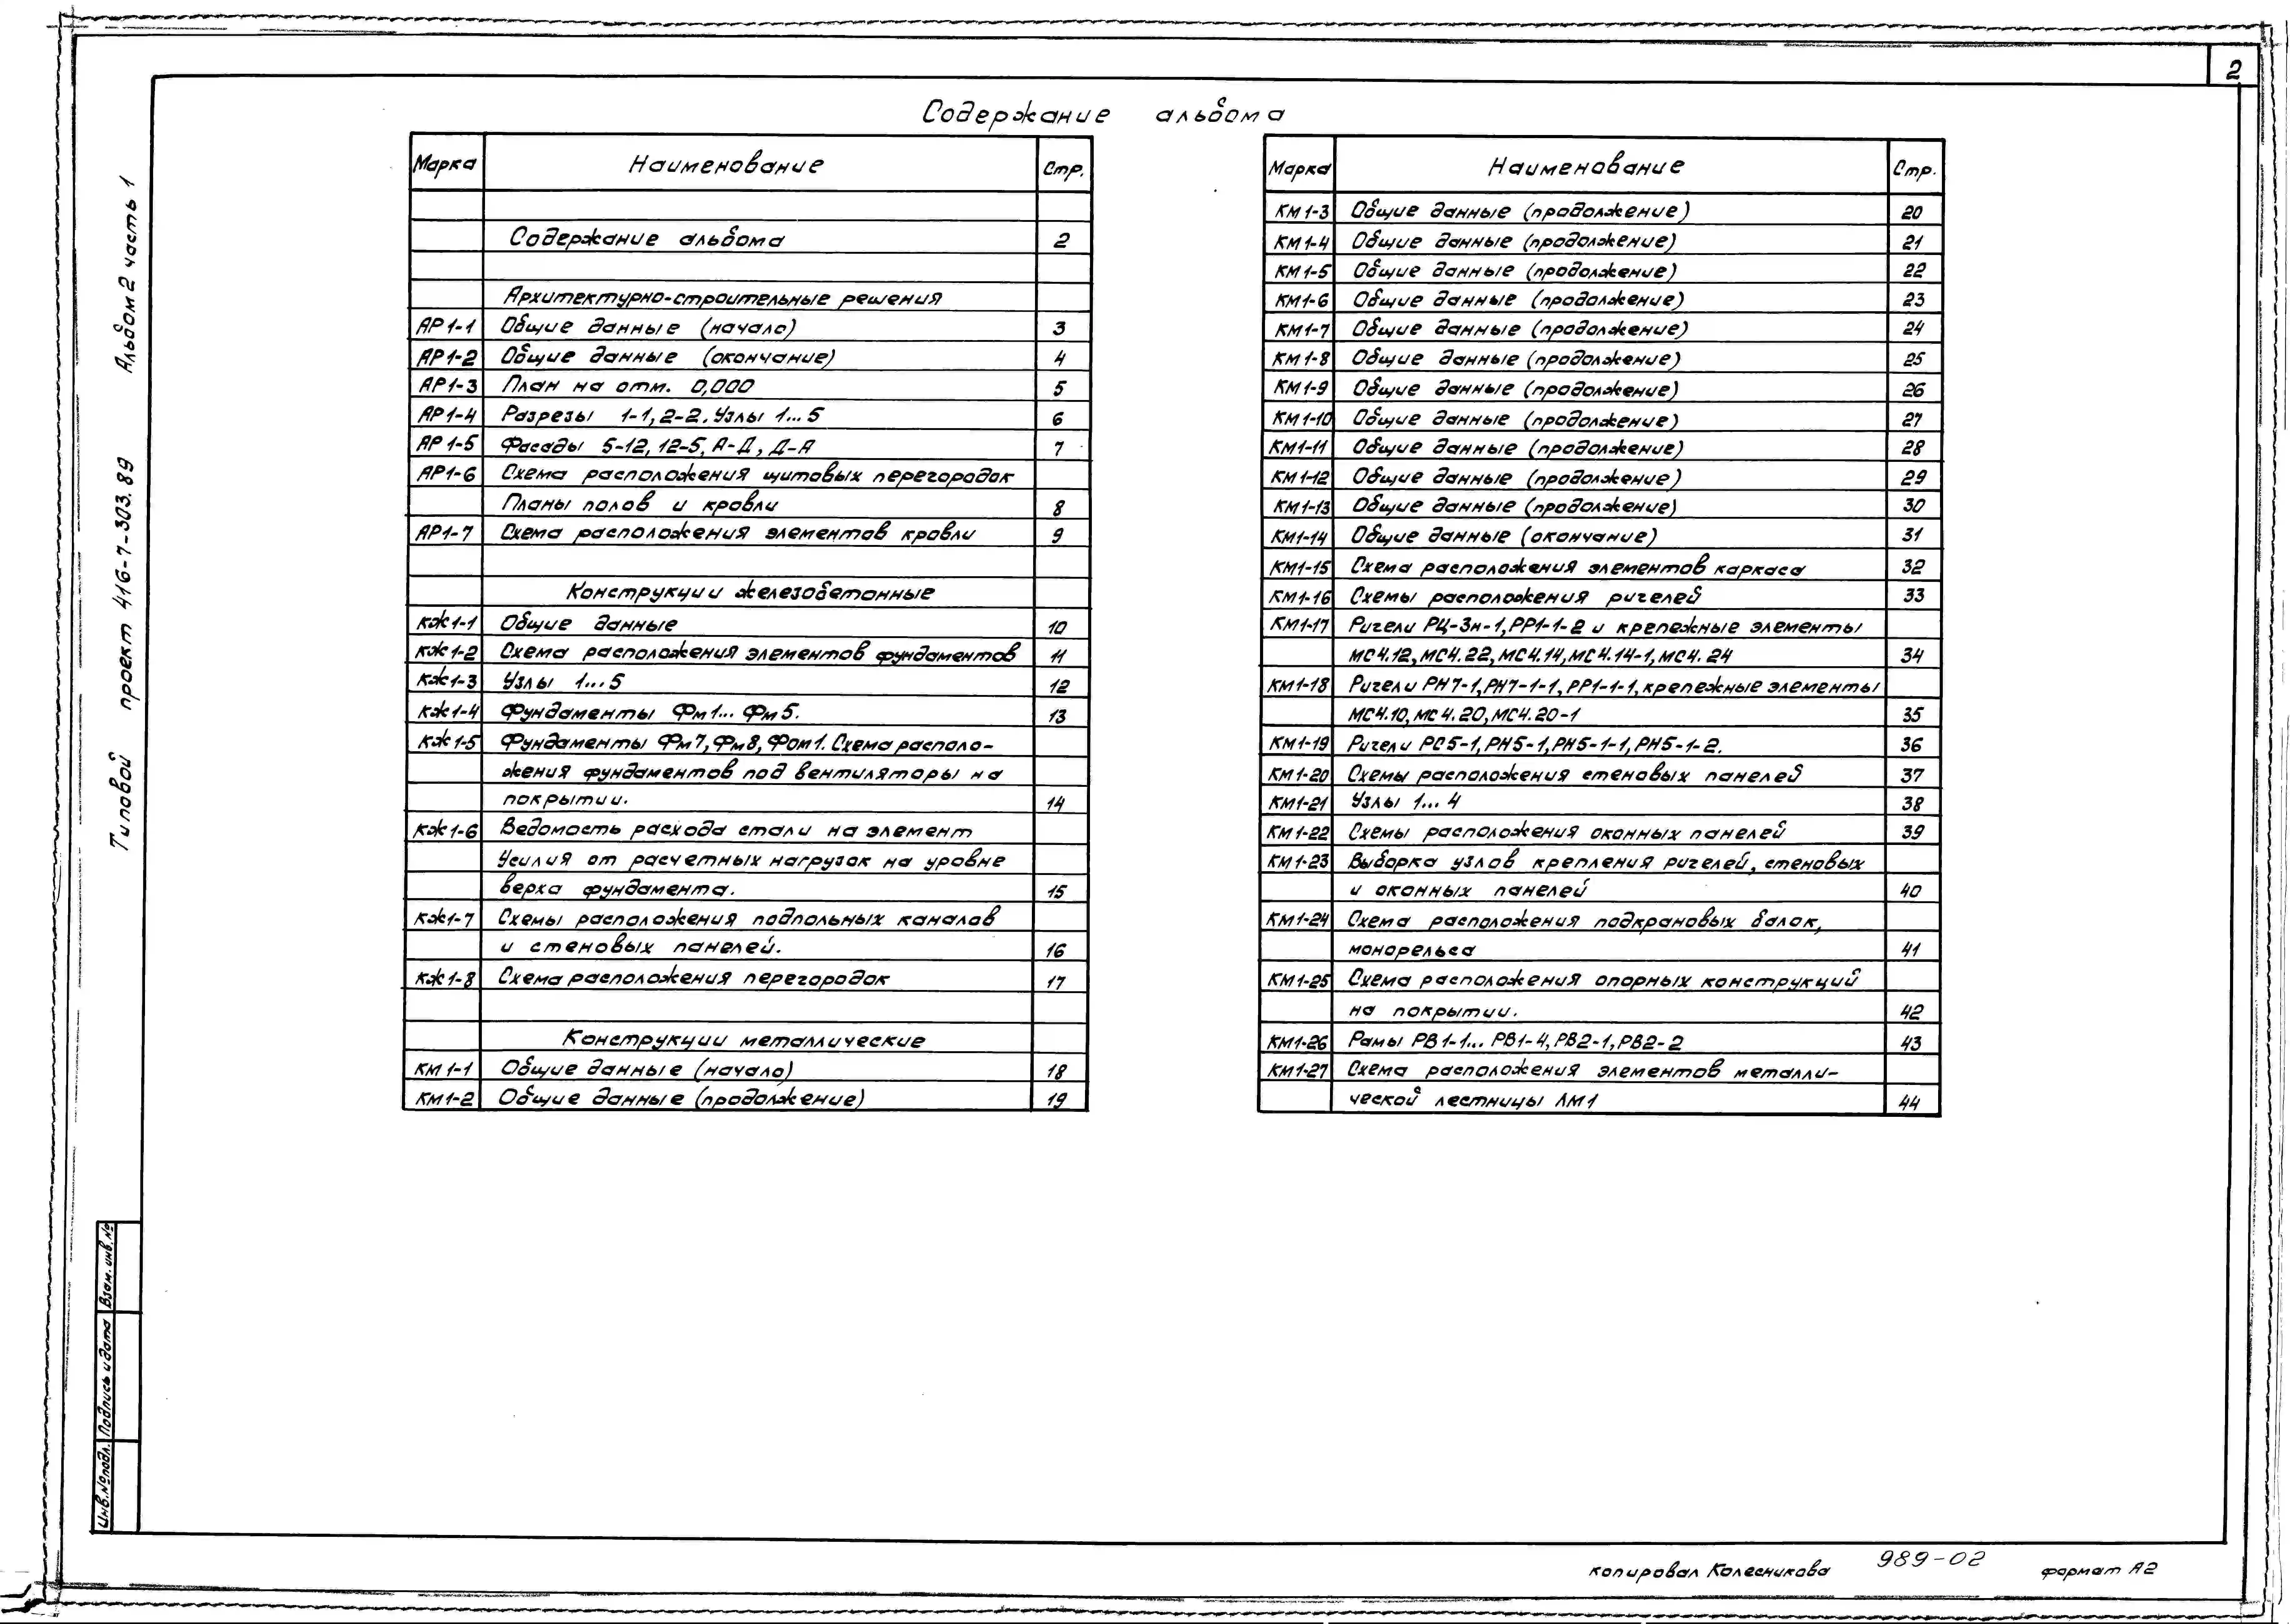 2
Содержание альбома
Марка Наименование Стр.
Содержание альбома 2
Архитектурно-строительные решения
АР1-1 Общие данные (начало) 3
АР1-2 Общие данные (окончание) 4
АР1-3 План на отм. 0,000 5
АР1-4 Разрезы 1-1, 2-2. Узлы 1...5 6
АР1-5 Фасады 5-12, 12-5, А-Д, Д-А 7
АР1-6 Схема расположения щитовых перегородок
Планы полов и кровли 8
АР1-7 Схема расположения элементов кровли 9
Конструкции железобетонные
КЖ1-1 Общие данные 10
КЖ1-2 Схема расположения элементов фундаментов 11
КЖ1-3 Узлы 1...5 12
КЖ1-4 Фундаменты Фм1... Фм5. 13
КЖ1-5 Фундаменты Фм7, Фм8, Фом1. Схема располо-
жения фундаментов под вентиляторы на
покрытии. 14
КЖ1-6 Ведомость расхода стали на элемент
Усилия от расчетных нагрузок на уровне
верха фундамента. 15
КЖ1-7 Схемы расположения подпольных каналов
и стеновых панелей. 16
КЖ1-8 Схема расположения перегородок 17
Конструкции металлические
КМ1-1 Общие данные (начало) 18
КМ1-2 Общие данные (продолжение) 19
Марка Наименование Стр.
КМ1-3 Общие данные (продолжение) 20
КМ1-4 Общие данные (продолжение) 21
КМ1-5 Общие данные (продолжение) 22
КМ1-6 Общие данные (продолжение) 23
КМ1-7 Общие данные (продолжение) 24
КМ1-8 Общие данные (продолжение) 25
КМ1-9 Общие данные (продолжение) 26
КМ1-10 Общие данные (продолжение) 27
КМ1-11 Общие данные (продолжение) 28
КМ1-12 Общие данные (продолжение) 29
КМ1-13 Общие данные (продолжение) 30
КМ1-14 Общие данные (окончание) 31
КМ1-15 Схема расположения элементов каркаса 32
КМ1-16 Схемы расположения ригелей 33
КМ1-17 Ригели РЦ-3н-1, РР1-1-2 и крепежные элементы
МС4.12, МС4.22, МС4.14, МС4.14-1, МС4.24 34
КМ1-18 Ригели РН7-1, РН7-1-1, РР1-1-1, крепежные элементы
МС4.10, МС4.20, МС4.20-1 35
КМ1-19 Ригели РС5-1, РН5-1, РН5-1-1, РН5-1-2. 36
КМ1-20 Схемы расположения стеновых панелей 37
КМ1-21 Узлы 1...4 38
КМ1-22 Схемы расположения оконных панелей 39
КМ1-23 Выборка узлов крепления ригелей, стеновых
и оконных панелей 40
КМ1-24 Схема расположения подкрановых балок,
монорельса 41
КМ1-25 Схема расположения опорных конструкций
на покрытии. 42
КМ1-26 Рамы РВ1-1... РВ1-4, РВ2-1, РВ2-2 43
КМ1-27 Схема расположения элементов металли-
ческой лестницы ЛМ1 44
Типовой проект 416-7-303.89 Альбом 2 часть 1
Инв.№подл. Подпись и дата Взам. инв.№
копировал Колесникова 989-02 формат А2